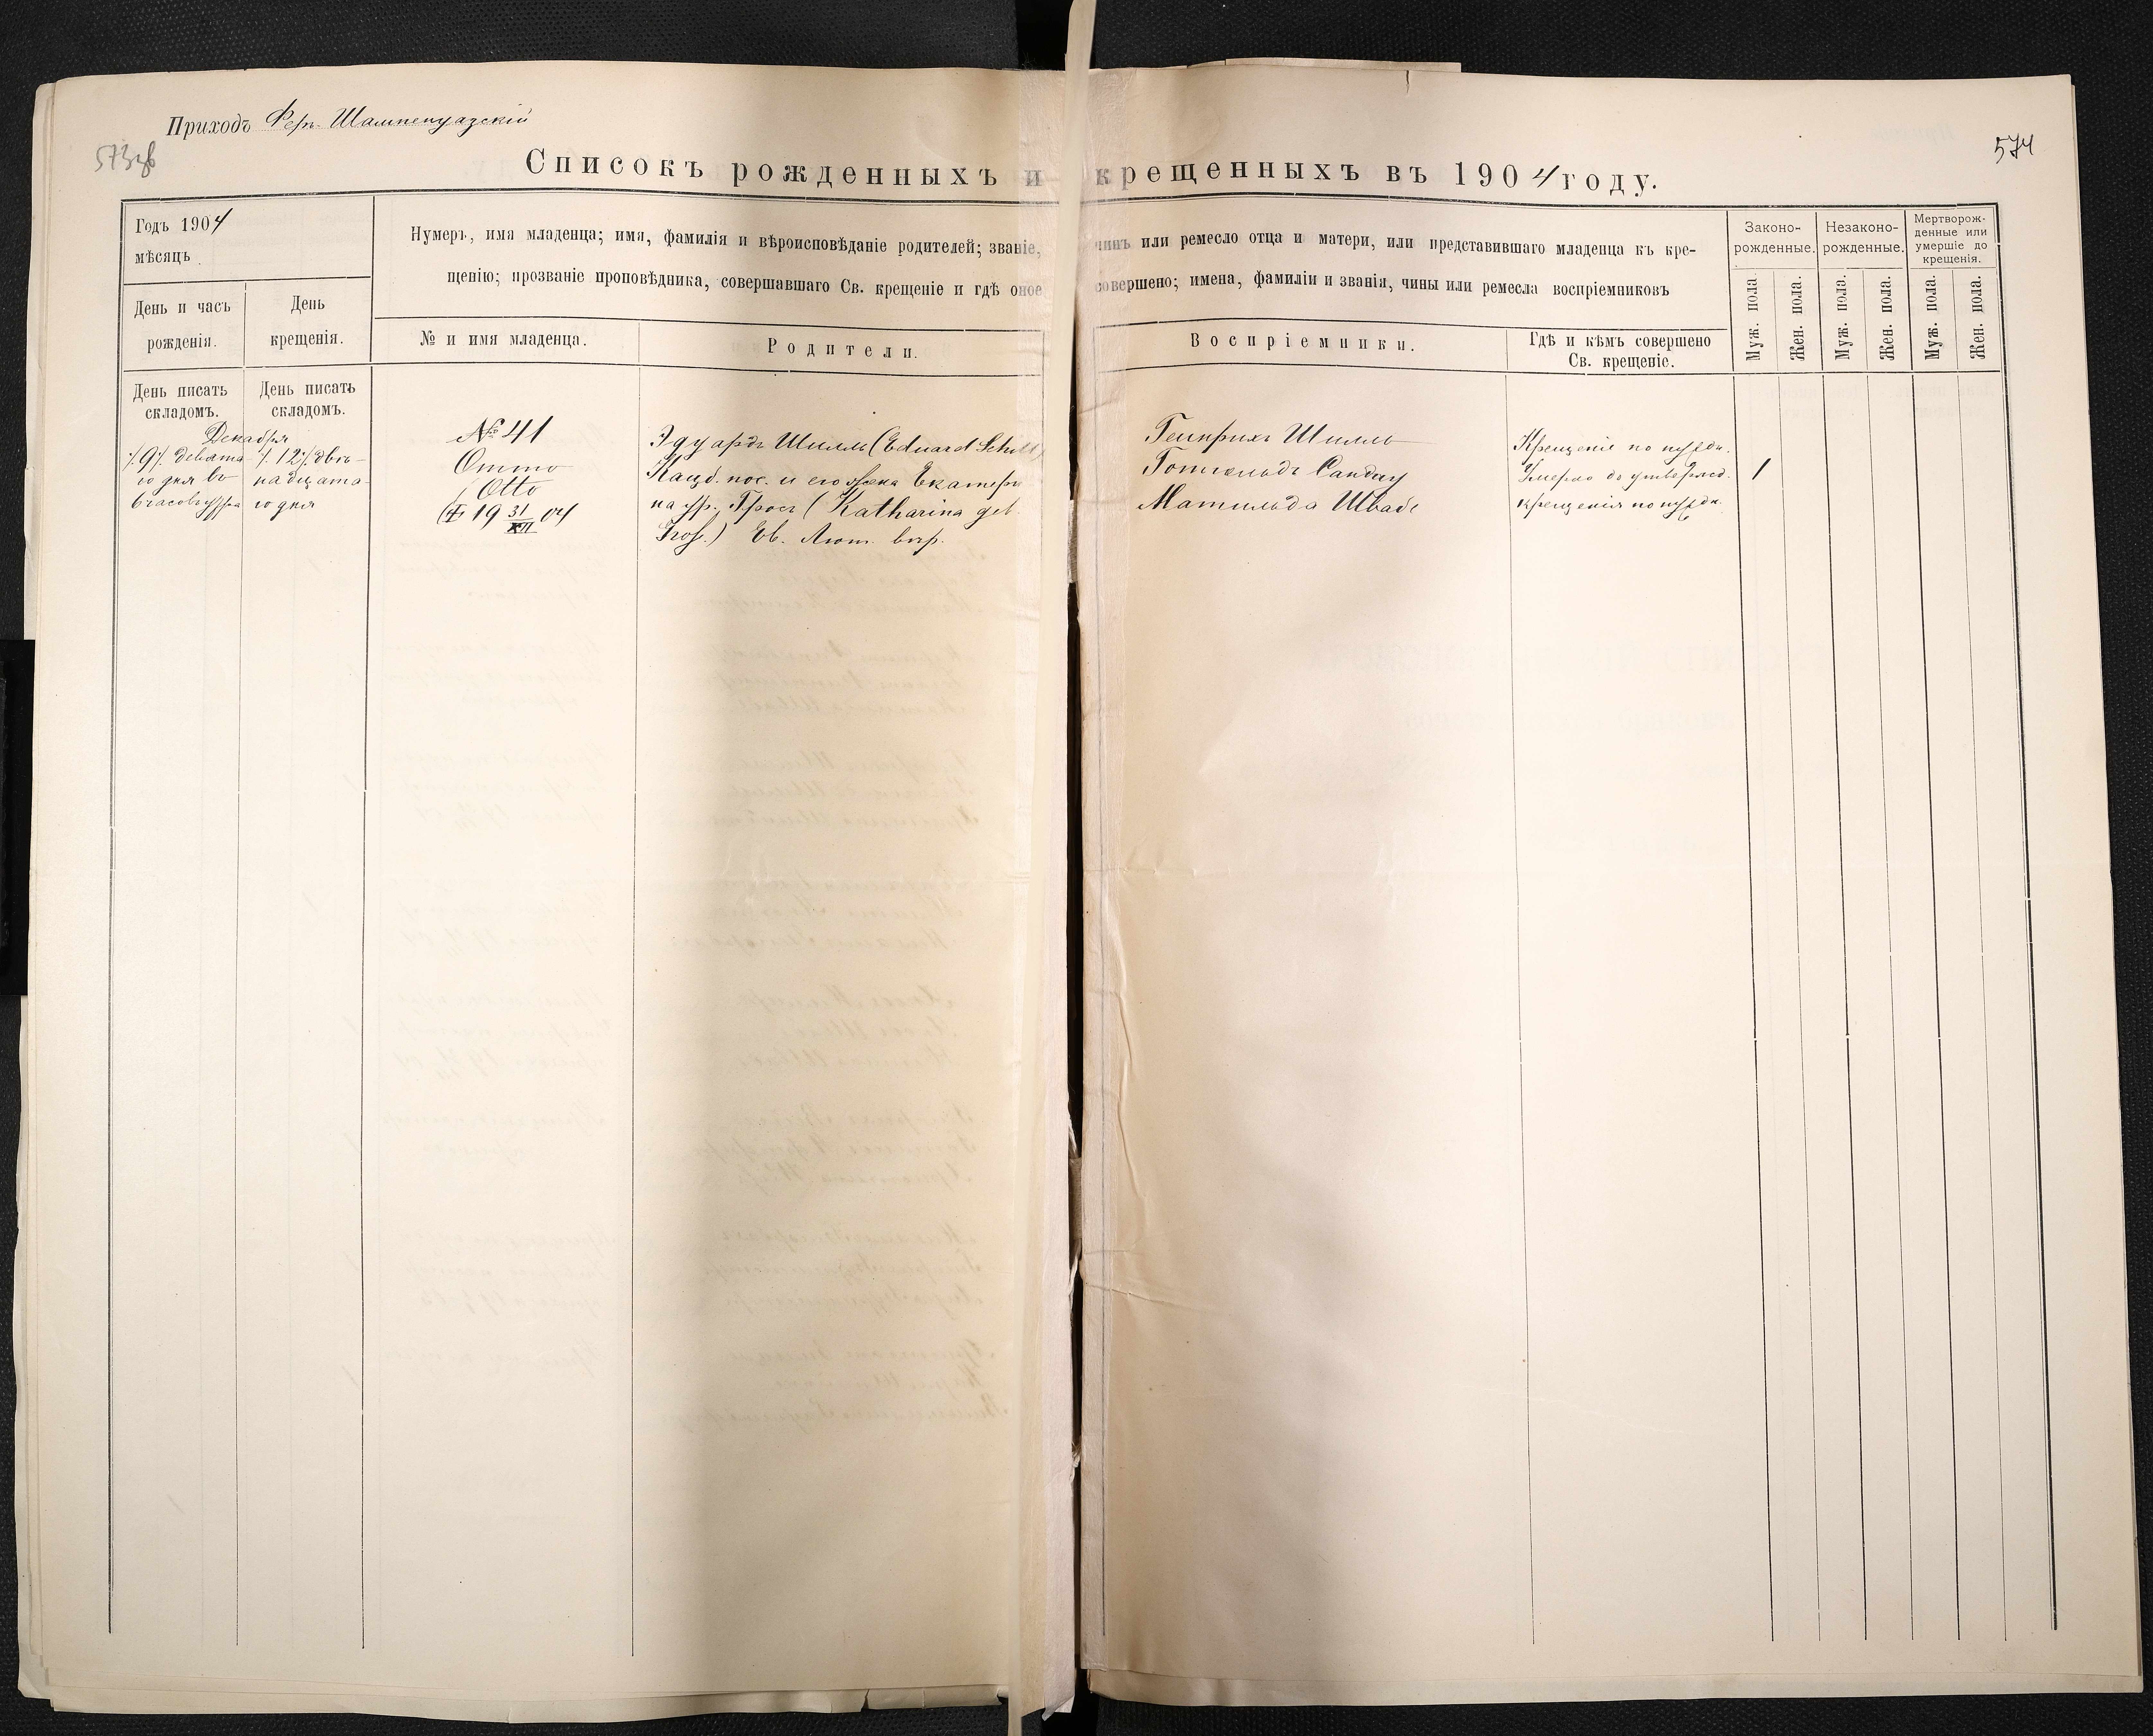 Приходъ Фер. Шампенуазскій
573об
574
Списокъ рожденныхъ и крещенныхъ въ 1904 году.
Годъ 1904
мѣсяцъ
День и часъ
рожденія.
День
крещенія.
Нумеръ, имя младенца; имя, фамилія и вѣроисповѣданіе родителей; званіе, чинъ или ремесло отца и матери, или представившаго младенца къ кре-
щенію; прозваніе проповѣдника, совершавшаго Св. крещеніе и гдѣ оное совершено; имена, фамиліи и званія, чины или ремесла воспріемниковъ
№ и имя младенца.
Родители.
Воспріемники.
Гдѣ и кѣмъ совершено
Св. крещеніе.
Законо-
рожденные.
Незаконо-
рожденные.
Мертворож-
денные или
умершіе до
крещенія.
Муж. пола.
Жен. пола.
Муж. пола.
Жен. пола.
Муж. пола.
Жен. пола.
День писать
складомъ.
День писать
складомъ.
Декабря
./. 9 ./. девята-
го дня въ
6 часовъ утра
./. 12 ./. двѣ-
надцата-
го дня
№ 41
Отто
Otto
19 31/XII 04
Эдуардъ Шилль (Eduard Schill)
пос. и его жена Екатери
на ур. Гросъ (Katharina geb.
Groß.) Ев. Лют. вѣр.
Генрихъ Шилль
Готгольдъ Сандау
Матильда Швабе
Крещеніе по нуждѣ.
Умерло до утвержд.
крещенія по нуждѣ.
1